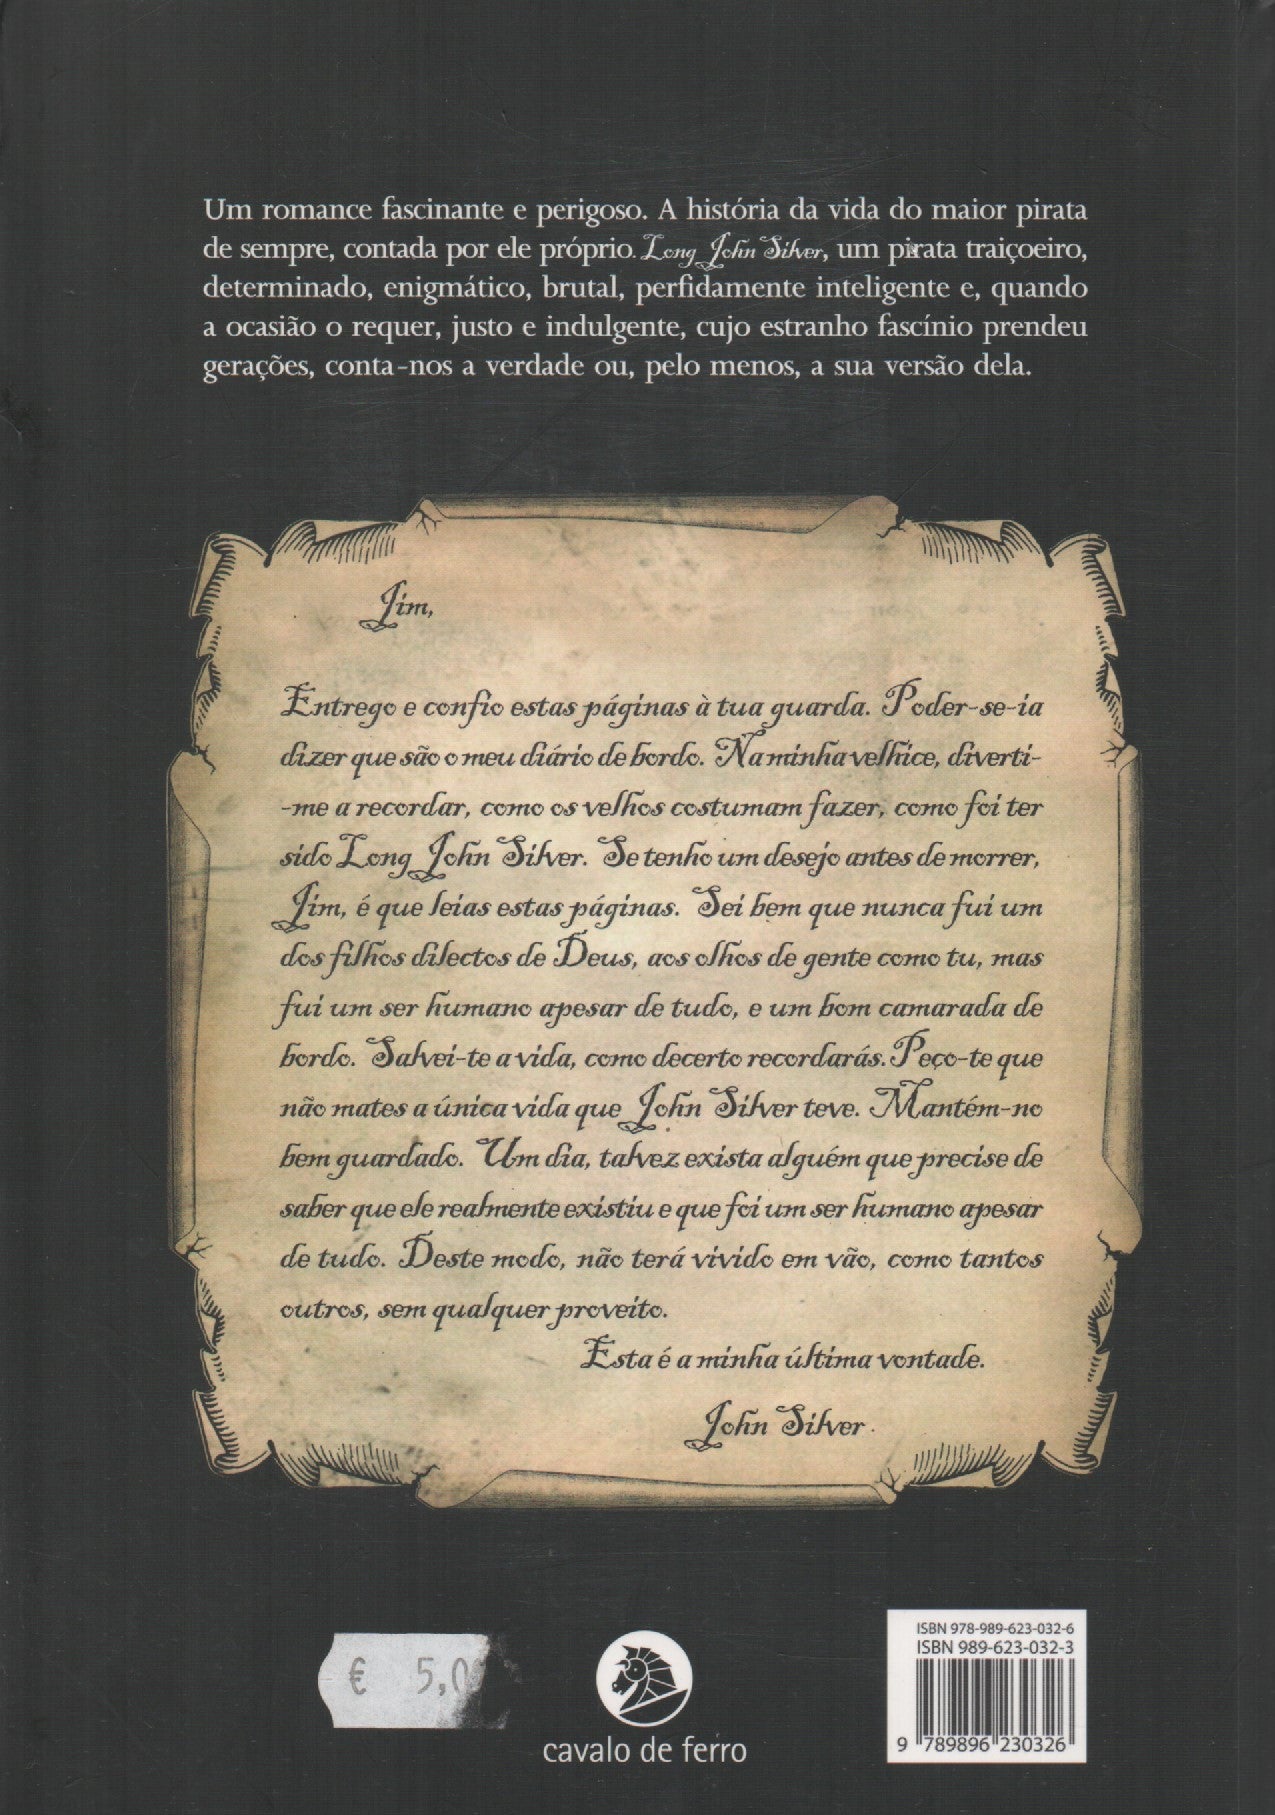 Um romance fascinante e perigoso. A história da vida do maior pirata
de sempre, contada por ele próprio. Long John Silver, um pirata traiçoeiro,
determinado, enigmático, brutal, perfidamente inteligente e, quando
a ocasião o requer, justo e indulgente, cujo estranho fascínio prendeu
gerações, conta-nos a verdade ou, pelo menos, a sua versão dela.
Jim,
Entrego e confio estas páginas à tua guarda. Poder-se-ia
dizer que são o meu diário de bordo. Na minha velhice, diverti-
-me a recordar, como os velhos costumam fazer, como foi ter
sido Long John Silver. Se tenho um desejo antes de morrer,
Jim, é que leias estas páginas. Sei bem que nunca fui um
dos filhos dilectos de Deus, aos olhos de gente como tu, mas
fui um ser humano apesar de tudo, e um bom camarada de
bordo. Salvei-te a vida, como decerto recordarás. Peço-te que
não mates a única vida que John Silver teve. Mantém-no
bem guardado. Um dia, talvez exista alguém que precise de
saber que ele realmente existiu e que foi um ser humano apesar
de tudo. Deste modo, não terá vivido em vão, como tantos
outros, sem qualquer proveito.
Esta é a minha última vontade.
John Silver
€ 5,0
cavalo de ferro
ISBN 978-989-623-032-6
ISBN 989-623-032-3
9 789896 230326